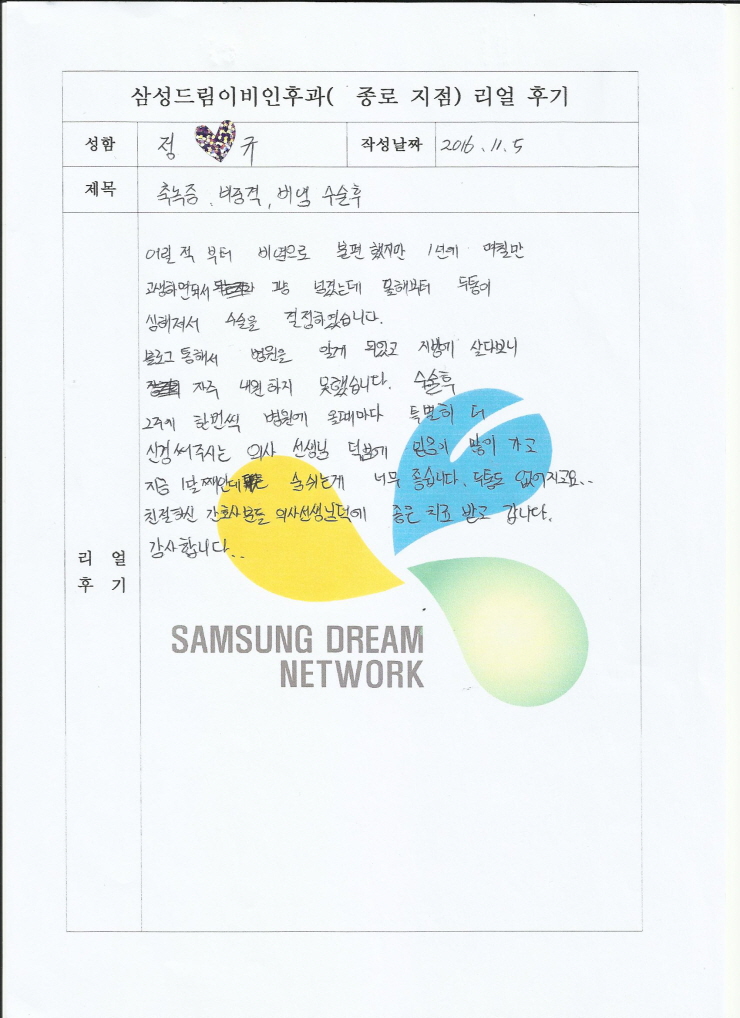 삼성드림이비인후과( 종로 지점) 리얼 후기
성함 정 규 작성날짜 2016.11.5
제목 축농증, 비중격, 비염 수술후
어릴 적 부터 비염으로 불편 했지만 1년에 며칠만
고생하면되서 그냥 넘겼는데 올해부터 두통이
심해져서 수술을 결정하였습니다.
블로그 통해서 병원을 알게 되었고 지방에 살다보니
자주 내원 하지 못했습니다. 수술후
2주에 한번씩 병원에 올때마다 특별히 더
신경써주시는 의사 선생님 덕분에 믿음이 많이 가고
지금 1달 째인데 숨쉬는게 너무 좋습니다. 두통도 없어지고요..
친절하신 간호사분들 의사선생님덕에 좋은 치료 받고 갑니다.
감사합니다..
리 얼
후 기
SAMSUNG DREAM
NETWORK